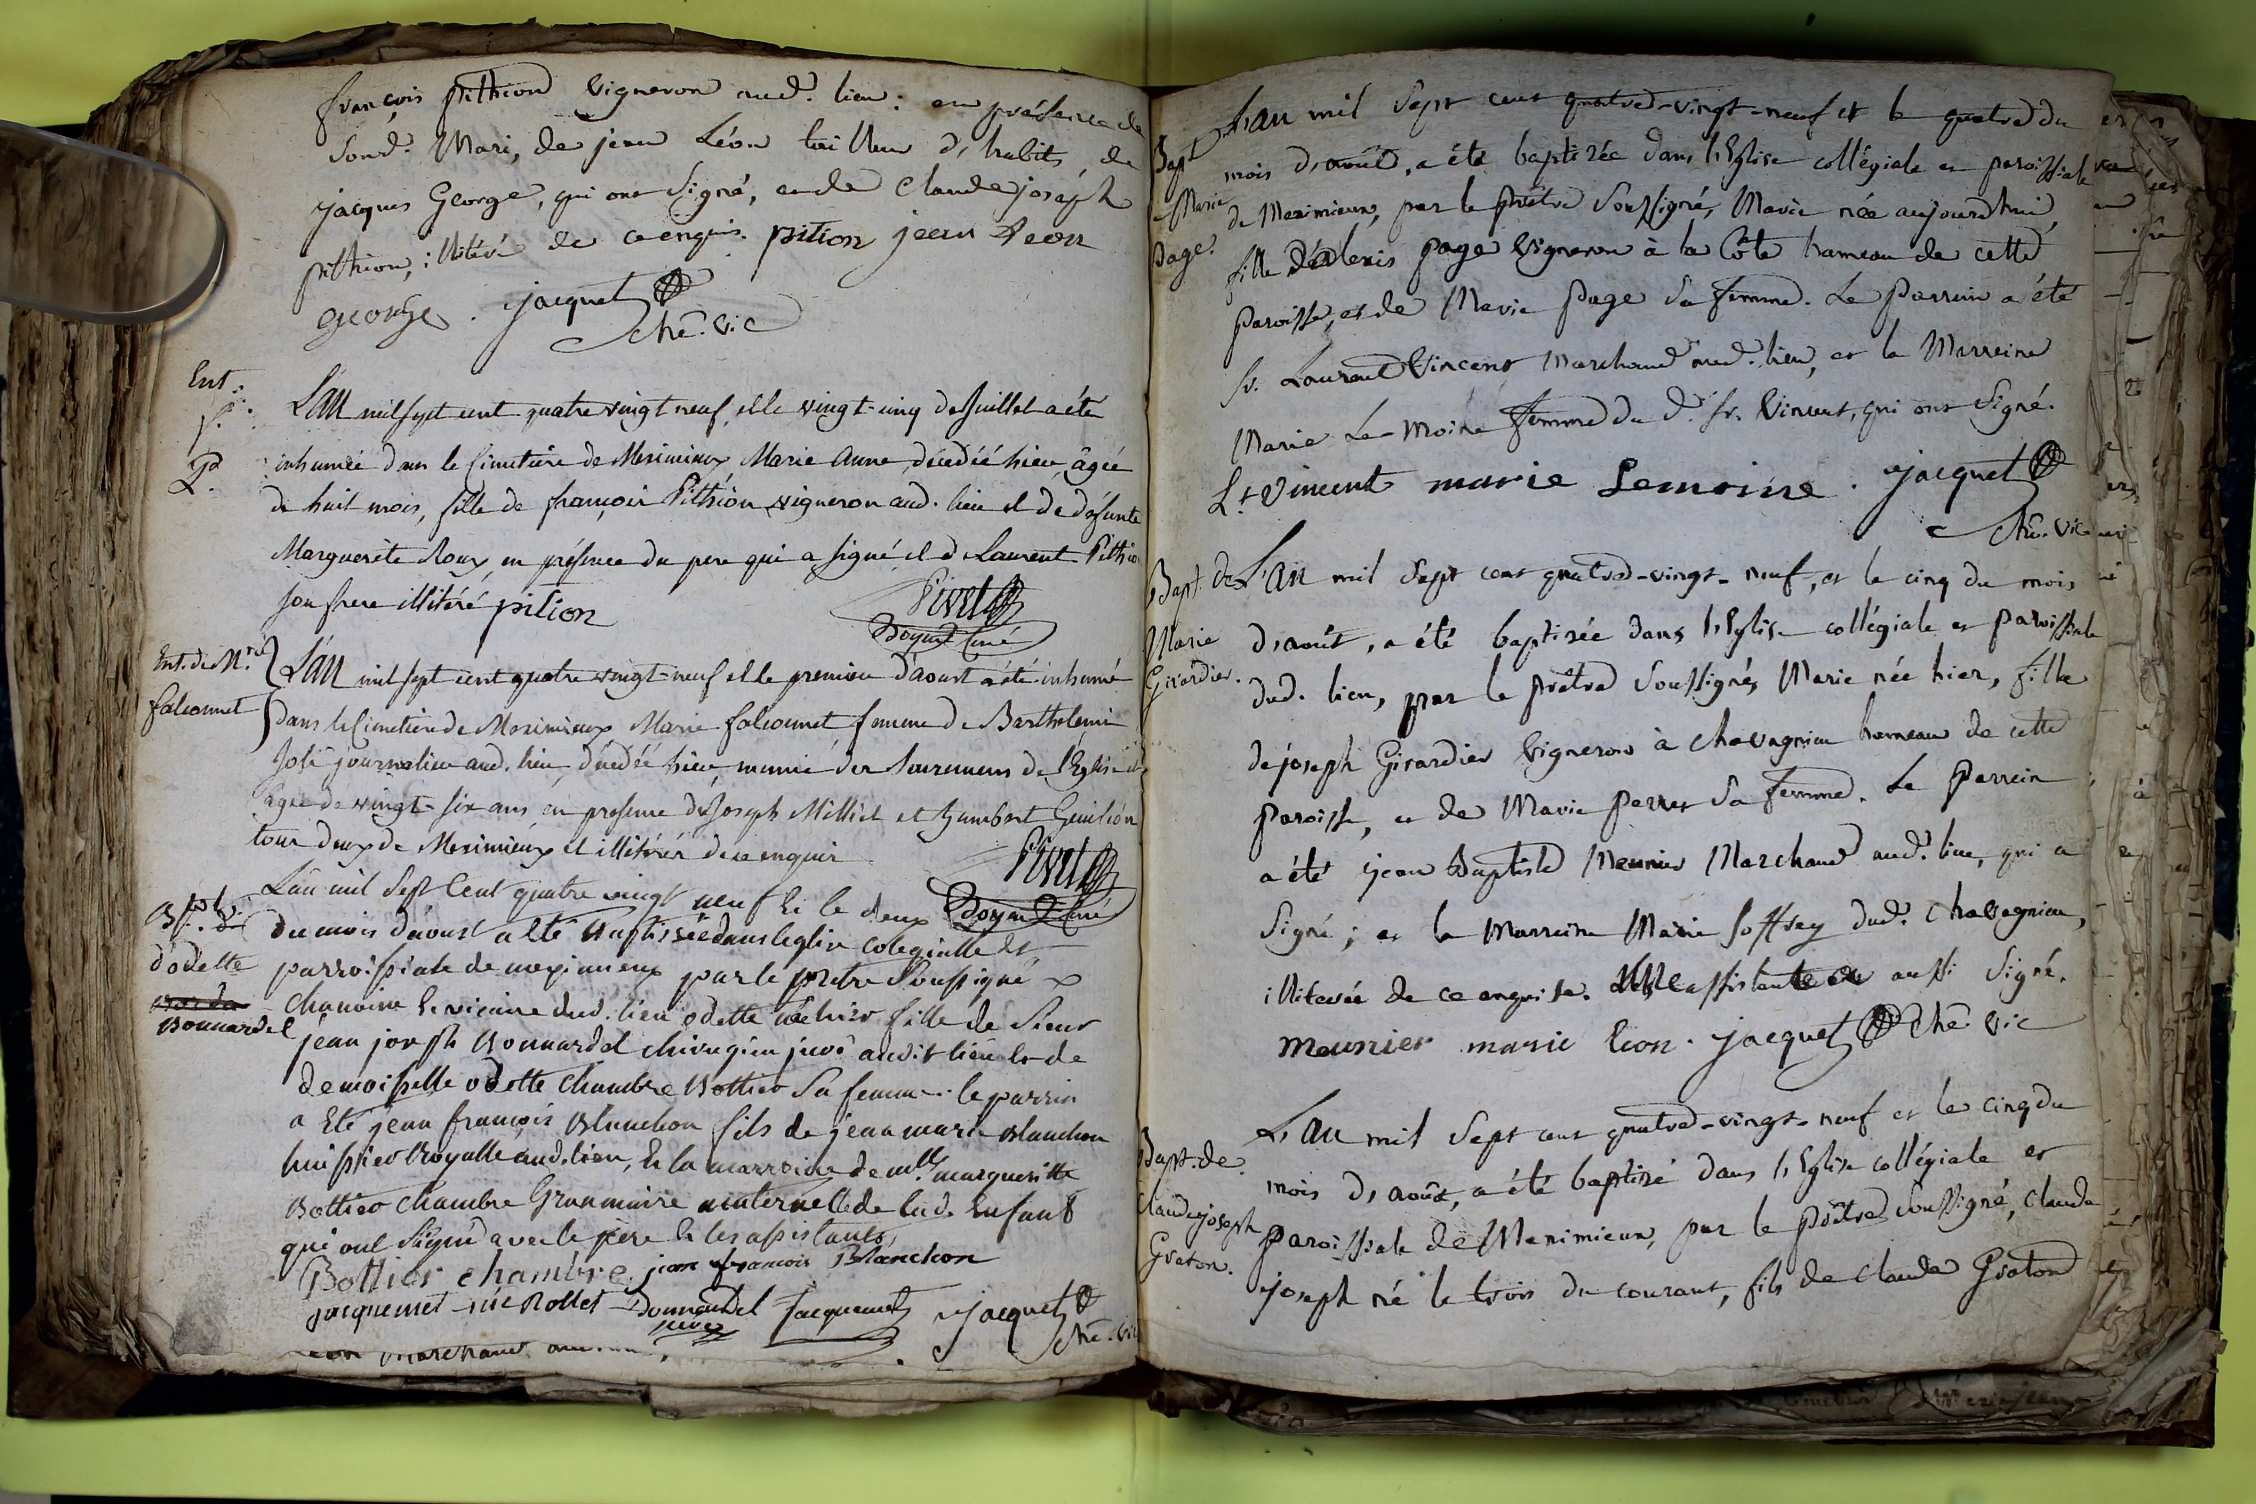 françois pithion Vigneron aud. lieu : en présence de
sond. Mari, de jean Léon tailleur d'habits, de
jacques George, qui ont signé, et de Claude joséph
pithion, illitéré de ce enquis. pition jean Leon
george . jacquet
chne. vic
Ent.
L'an mil sept cent quatre vingt neuf, et le vingt-cinq de Juillet a été
inhumée dans le Cimetière de Meximieux Marie Anne, décédée hier, âgée
de huit mois, fille de françois Pithion vigneron aud. lieu et de défunte
Marguerite Roux, en présence du pere qui a signé, et de Laurent Pithion
son frere illitéré pition
Pivet
Doyen Curé
Ent. de M.rie
falconnet
L'an mil sept cent quatre vingt-neuf et le premier d'aoust a été inhumé
dans le Cimetière de Meximieux Marie falconnet femme de Barthelemi
Joli journalier aud. lieu, décédée hier, munie des Sacremens de l'Eglise et
âgée de vingt-six ans en presence de Joseph Milliet et Humbert Guillon
tous deux de Meximieux et illitérés de ce enquis
Pivet
Doyen Curé
Bpt. de
d'odette
Bonnardel
L'an mil sept Cent quatre vingt neuf Et le deux
du mois d'aoust a Eté Baptisée dans leglise colegialle Et
parroissiale de meximieux par le pretre soussigné
chanoine Et vicaire dud. lieu odette née hier fille de sieur
jean joseph Bonnardel chirugien juré audit lieu Et de
demoiselle odette chambre Bottier sa femme. le parrin
a Eté jean françois Blanchon fils de jean marie Blanchon
huissier Royalle aud. lieu, Et la marraine de mlle. margueritte
Bottier chambre Granmaire maternelle de lad. Enfant
qui ont signé avec le père Et les assistants,
Bottier chambre jean francois Blanchon
jacquemet née Rollet Bonnardel Jacquemet jacquet
chne. vic
Bapt.
Marie
Page.
L'an mil sept cent quatre-vingt-neuf et le quatre du
mois d'août, a été baptisée dans l'Eglise collégiale et paroissiale
de Meximieux, par le prêtre soussigné, Marie née aujourd'hui,
fille d'alexis page Vigneron à la Côte hameau de cette
paroisse, et de Marie page sa femme. Le Parrein a été
sr. Laurent Vincent Marchand aud. lieu, et la Marreine
Marie Le-moine femme du d. sr. Vincent, qui ont signé.
Lt Vincent marie Lemoine . jacquet
chne. vic
Bapt. de
Marie
Girardier.
L'an mil sept cent quatre-vingt-neuf, et le cinq du mois
d'août, a été baptisée dans l'Eglise collégiale et paroissiale
dud. lieu, par le prêtre soussigné, Marie née hier, fille
de joseph Girardier Vigneron à Chavagnieu hameau de cette
paroisse, et de Marie perret sa femme. Le Parrein
a été jean Baptiste Meunier Marchand aud. lieu, qui a
signé ; et la Marreine Marie soffrey dud. Chavagnieu,
illiterée de ce enquise. assistante aussi signé.
meunier marie leon . jacquet chne. vic
Bapt. de
Claude joseph
Graton.
L'an mil sept cent quatre-vingt-neuf et le cinq du
mois d'août, a été baptisé dans l'Eglise collégiale et
paroissiale de Meximieux, par le prêtre soussigné, Claude
joseph né le trois du courant, fils de Claude Graton